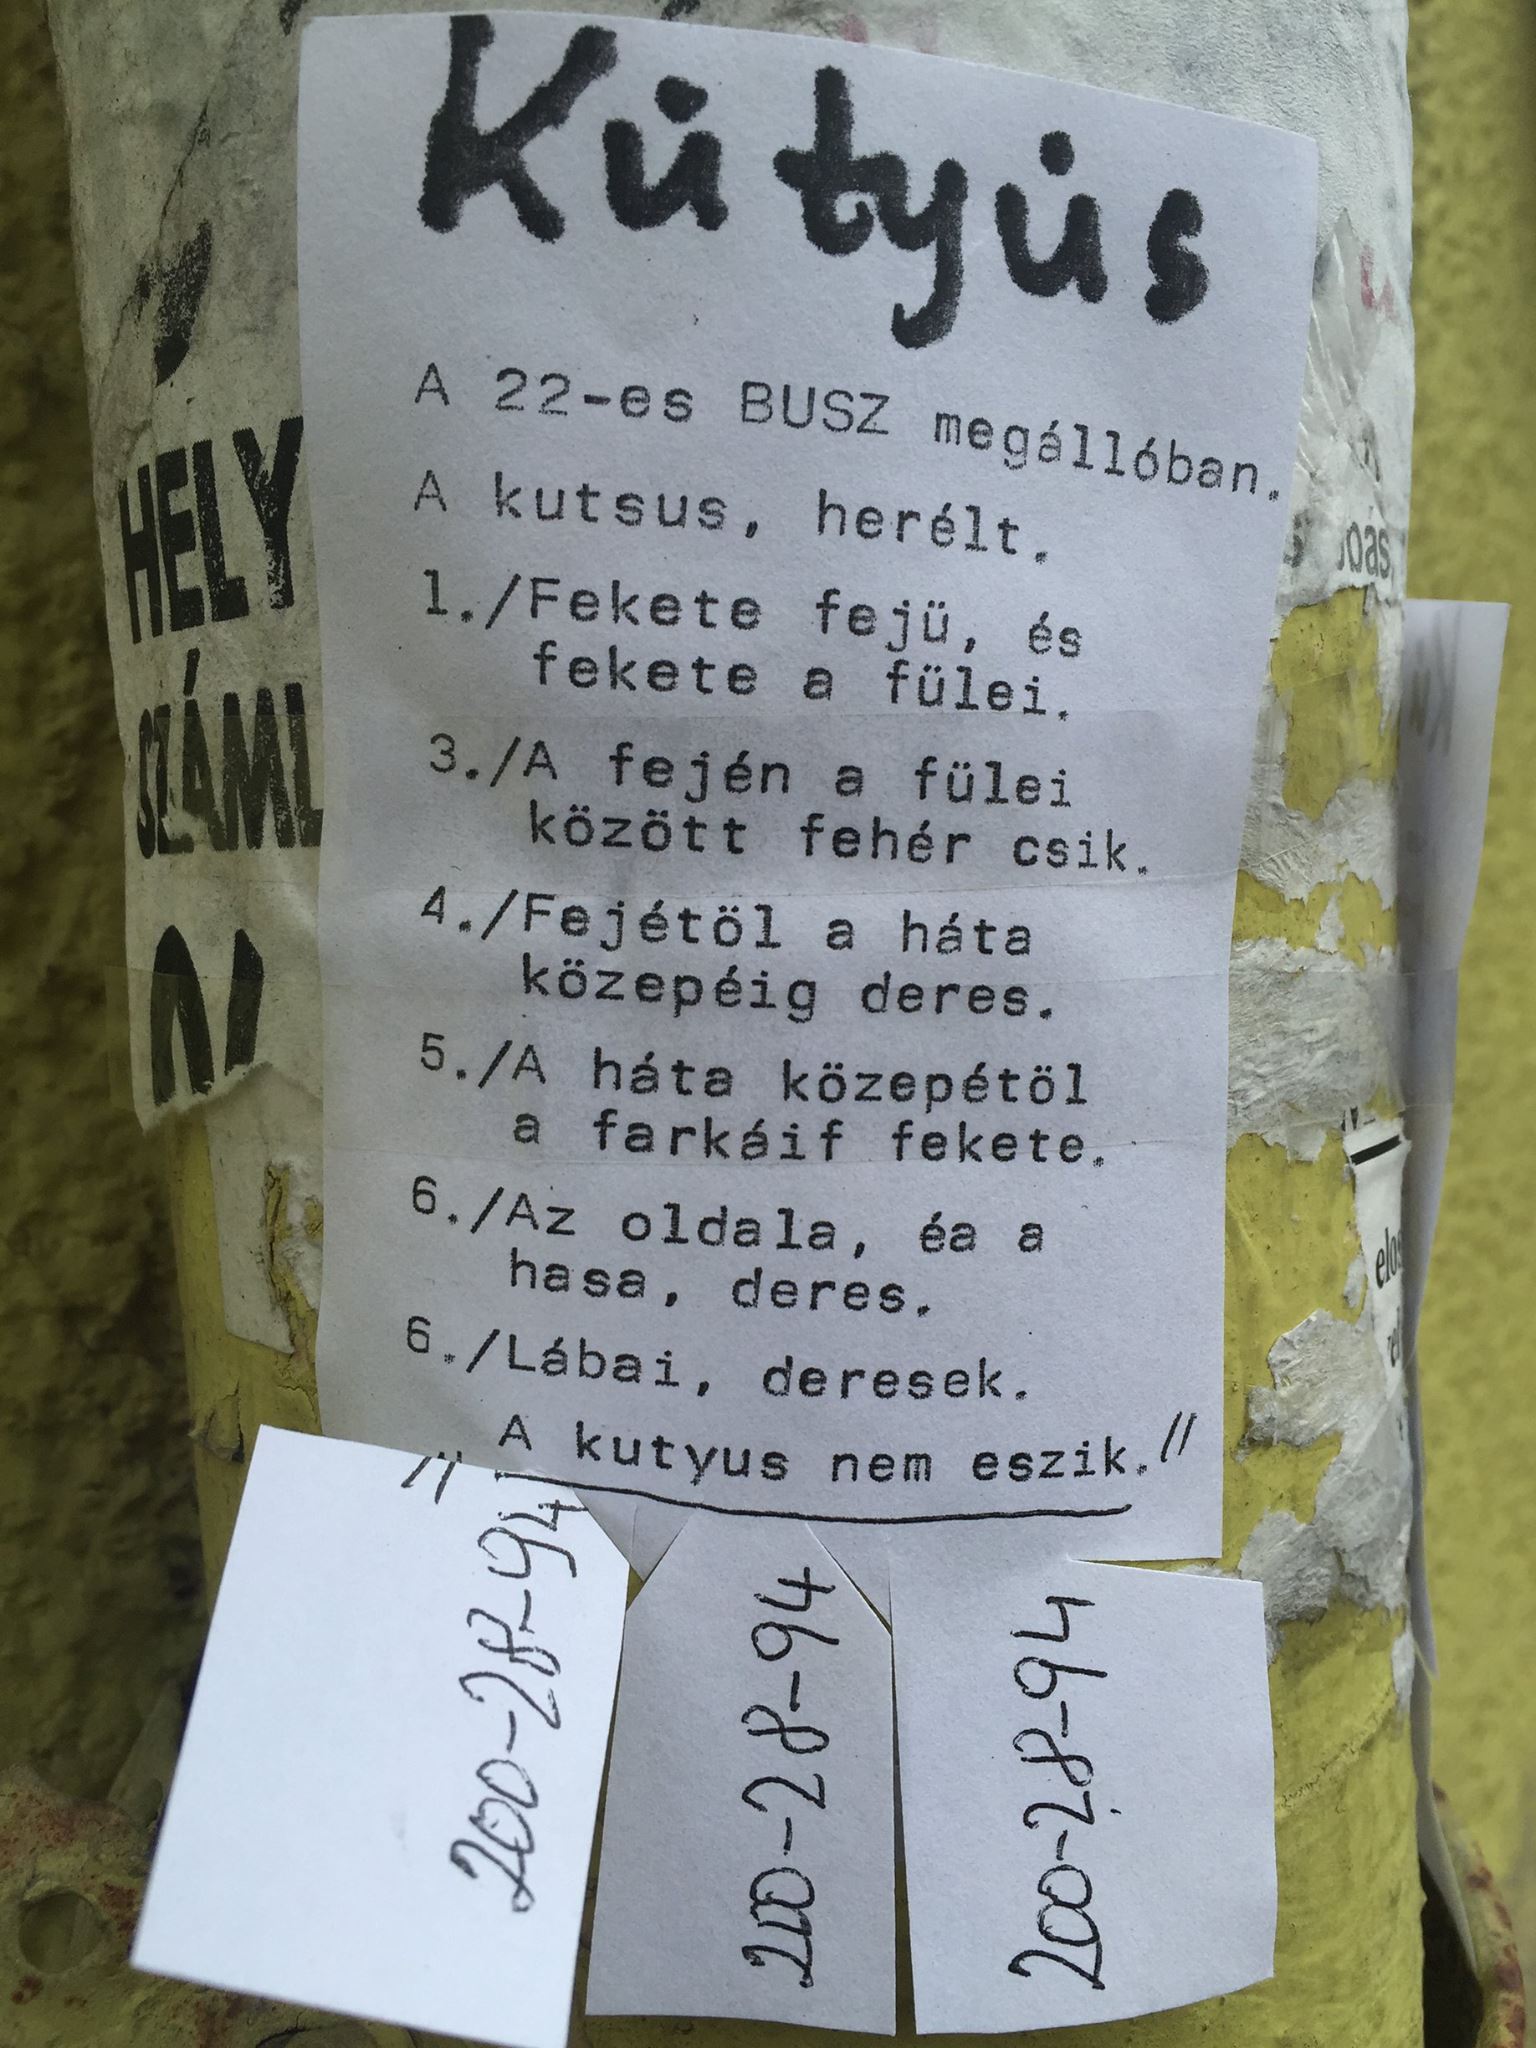 Kutyus
A 22-es BUSZ megállóban.
A kutsus, herélt.
1./Fekete fejü, és
fekete a fülei.
3./A fején a fülei
között fehér csik.
4./Fejétöl a háta
közepéig deres.
5./A háta közepétöl
a farkáif fekete.
6./Az oldala, éa a
hasa, deres.
6./Lábai, deresek.
"A kutyus nem eszik."
200-28-94
200-28-94
200-28-94
HÉLY
SZÁML